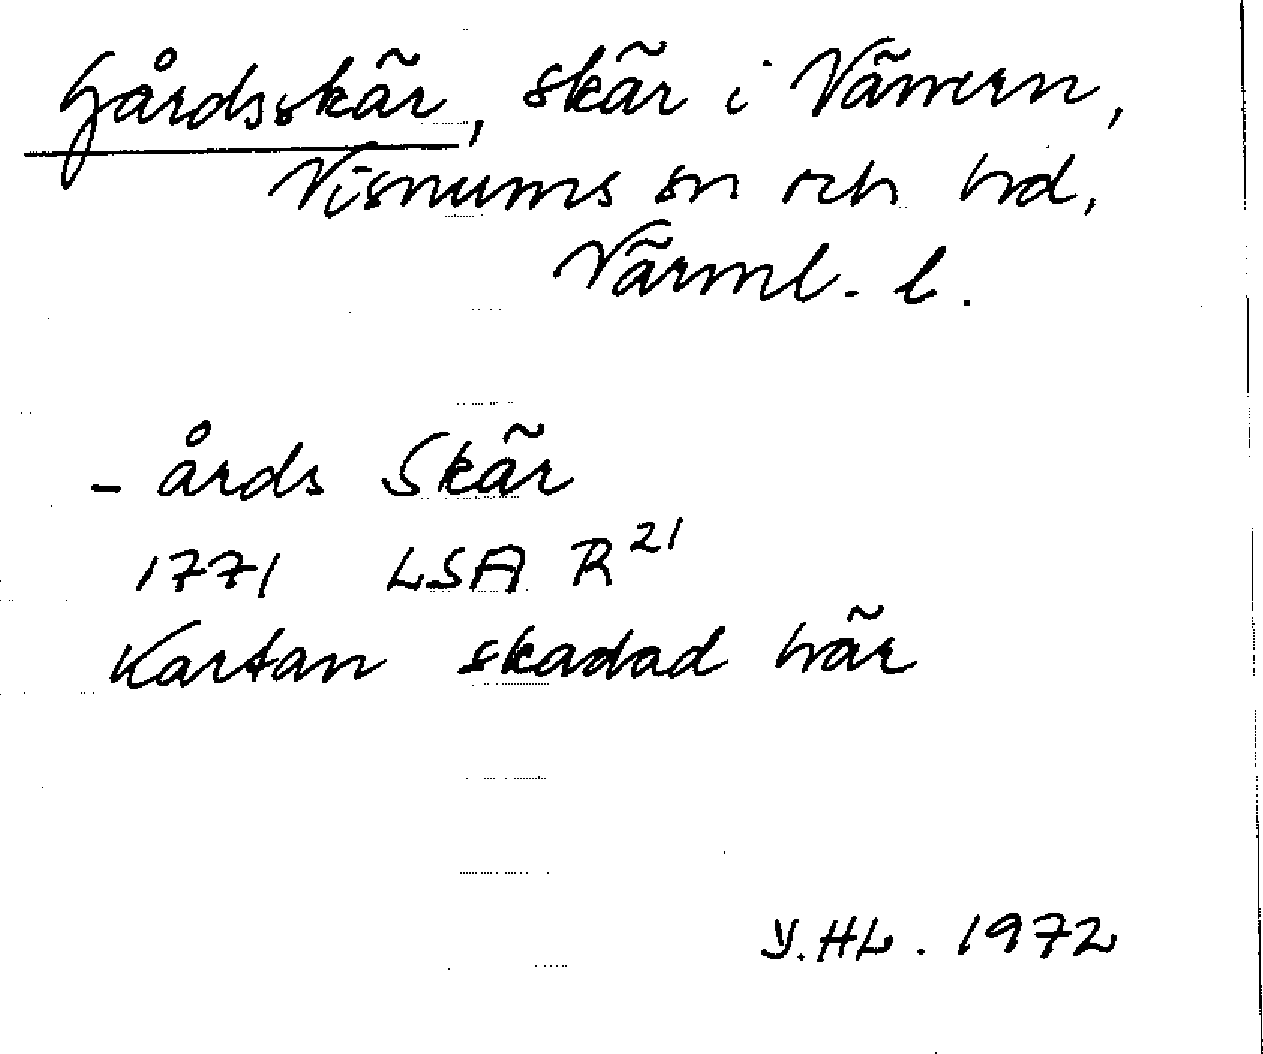 Gårdsskär, skär i Vänern,
Visnums sn och hd,
Värml. l.
- årds Skär
1771 LSA R 21
Kartan skadad här
Y.HL. 1972